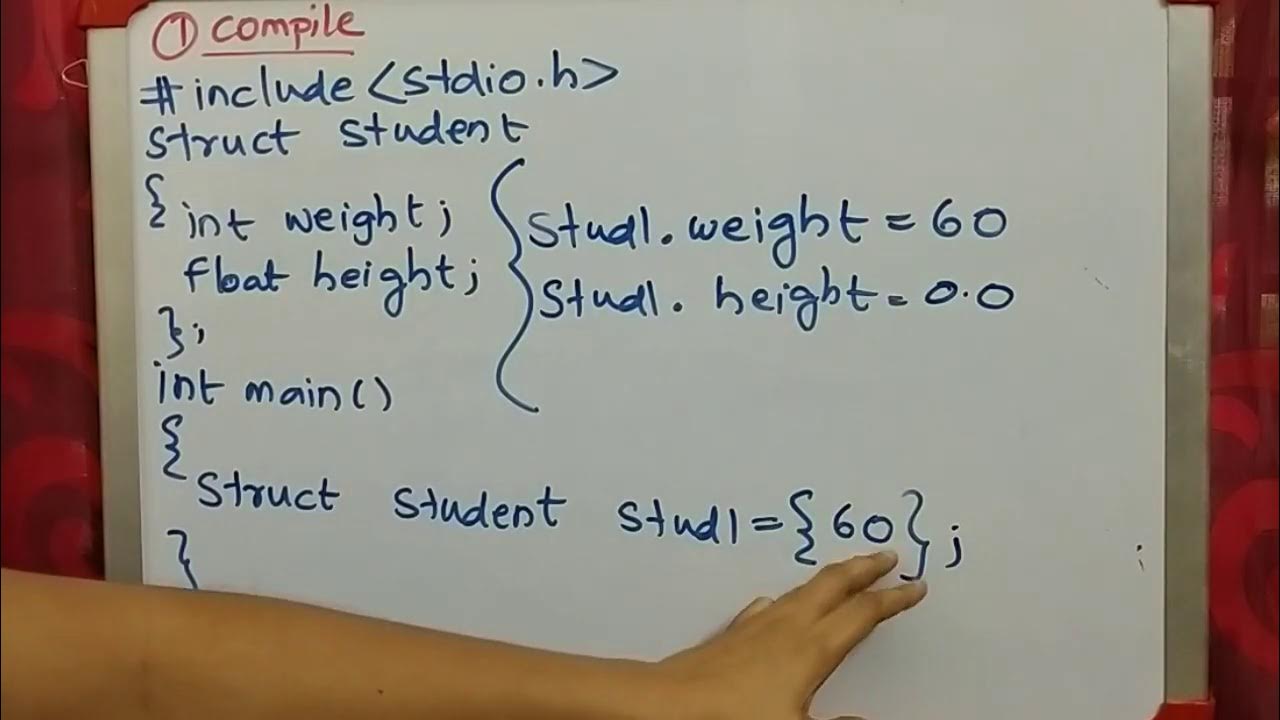 ① compile
#include <stdio.h>
struct student
{
int weight;
float height;
};
{
stud1.weight = 60
stud1. height = 0.0
int main()
{
struct student stud1 = {60};
}